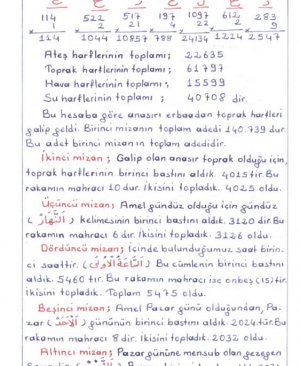 114 522 517 197 1097 612 283
x 1 x 2 x 21 x 4 x 22 x 2 x 9
114 1044 10857 788 24134 1224 2547
Ateş harflerinin toplamı; 22635
Toprak harflerinin toplamı; 61797
Hava harflerinin toplamı; 15599
Su harflerinin toplamı; 40708 dir.
Bu hesaba göre anasırı erbaadan toprak harfleri
galip geldi. Birinci mizanın toplam adedi 140.739 dur.
Bu adet birinci mizanın toplam adedidir.
İkinci mizan; Galip olan anasır toprak olduğu için,
toprak harflerinin birinci bastını aldık. 4015 tir. Bu
rakamın mahracı 10 dur. İkisini topladık. 4025 oldu.
Üçüncü mizan; Amel gündüz olduğu için gündüz
(اَلنَّهَارُ) Kelimesinin birinci bastını aldık. 3120 dir. Bu
rakamın mahracı 6 dır. İkisini topladık. 3126 oldu.
Dördüncü mizan; İçinde bulunduğumuz saat birin-
ci saattir. (اَلسَّاعَةُ الْأُولَى) Bu cümlenin birinci bastını
aldık. 5460 tır. Bu rakamın mahracı ise onbeş (15) tir.
İkisini topladık. Toplam 5475 oldu.
Beşinci mizan; Amel Pazar günü olduğundan, Pa-
zar (اَلْأَحَدُ) gününün birinci bastını aldık. 2024 tür. Bu
rakamın mahracı 8 dir. İkisini topladık. 2032 oldu.
Altıncı mizan; Pazar gününe mensub olan gezegen